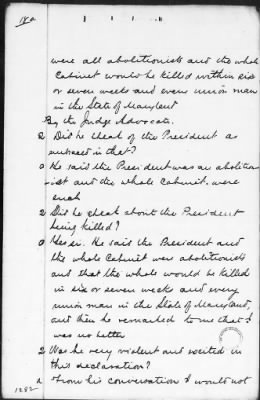 were all abolitionists and the whole
Cabinet would be killed within six
or seven weeks and every union man
in the State of Maryland
By the Judge Advocate.
Q Did he speak of the President as
embraced in that?
A He said the President was an abolition-
ist and the whole Cabinet were
such
Q Did he speak about the President
being killed?
A Yes sir. He said the President and
the whole Cabinet were abolitionists
and that the whole would be killed
in six or seven weeks and every
union man in the State of Maryland,
and then he remarked to me that I
was no better
Q Was he very violent and excited in
this declaration?
A From his conversation I would not
1282